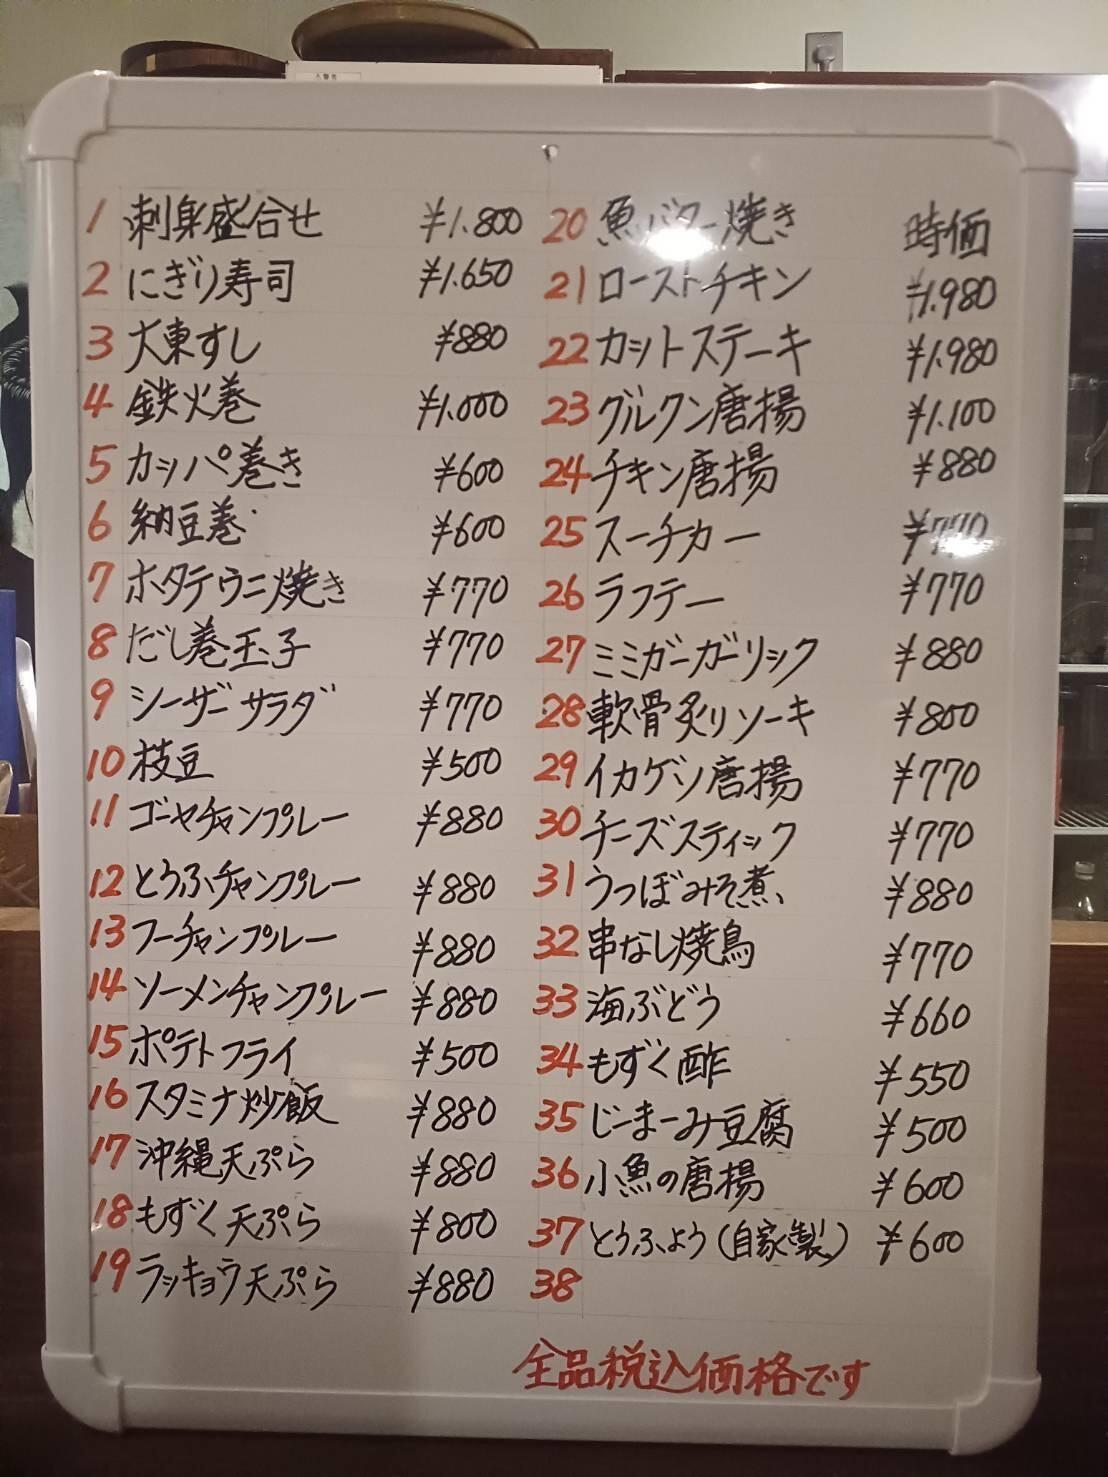 1 刺身盛合せ ¥1.800
2 にぎり寿司 ¥1.650
3 大東すし ¥880
4 鉄火巻 ¥1.000
5 カッパ巻き ¥600
6 納豆巻 ¥600
7 ホタテウニ焼き ¥770
8 だし巻玉子 ¥770
9 シーザーサラダ ¥770
10 枝豆 ¥500
11 ゴーヤチャンプルー ¥880
12 とうふチャンプルー ¥880
13 フーチャンプルー ¥880
14 ソーメンチャンプルー ¥880
15 ポテトフライ ¥500
16 スタミナ炒飯 ¥880
17 沖縄天ぷら ¥880
18 もずく天ぷら ¥800
19 ラッキョウ天ぷら ¥880
20 魚バター焼き 時価
21 ローストチキン ¥1.980
22 カットステーキ ¥1.980
23 グルクン唐揚 ¥1.100
24 チキン唐揚 ¥880
25 スーチカー ¥770
26 ラフテー ¥770
27 ミミガーガーリック ¥880
28 軟骨炙りソーキ ¥800
29 イカゲソ唐揚 ¥770
30 チーズスティック ¥770
31 うつぼみそ煮 ¥880
32 串なし焼鳥 ¥770
33 海ぶどう ¥660
34 もずく酢 ¥550
35 じーまーみ豆腐 ¥500
36 小魚の唐揚 ¥600
37 とうふよう(自家製) ¥600
38
全品税込価格です